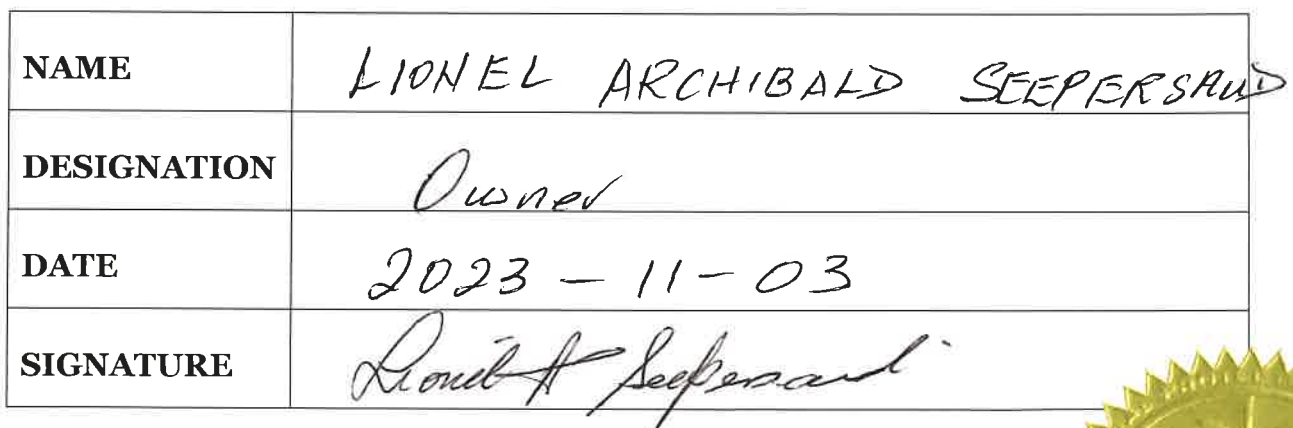 NAME LIONEL ARCHIBALD SEEPERSAUD
DESIGNATION Owner
DATE 2023-11-03
SIGNATURE Lionel A Seepersaud